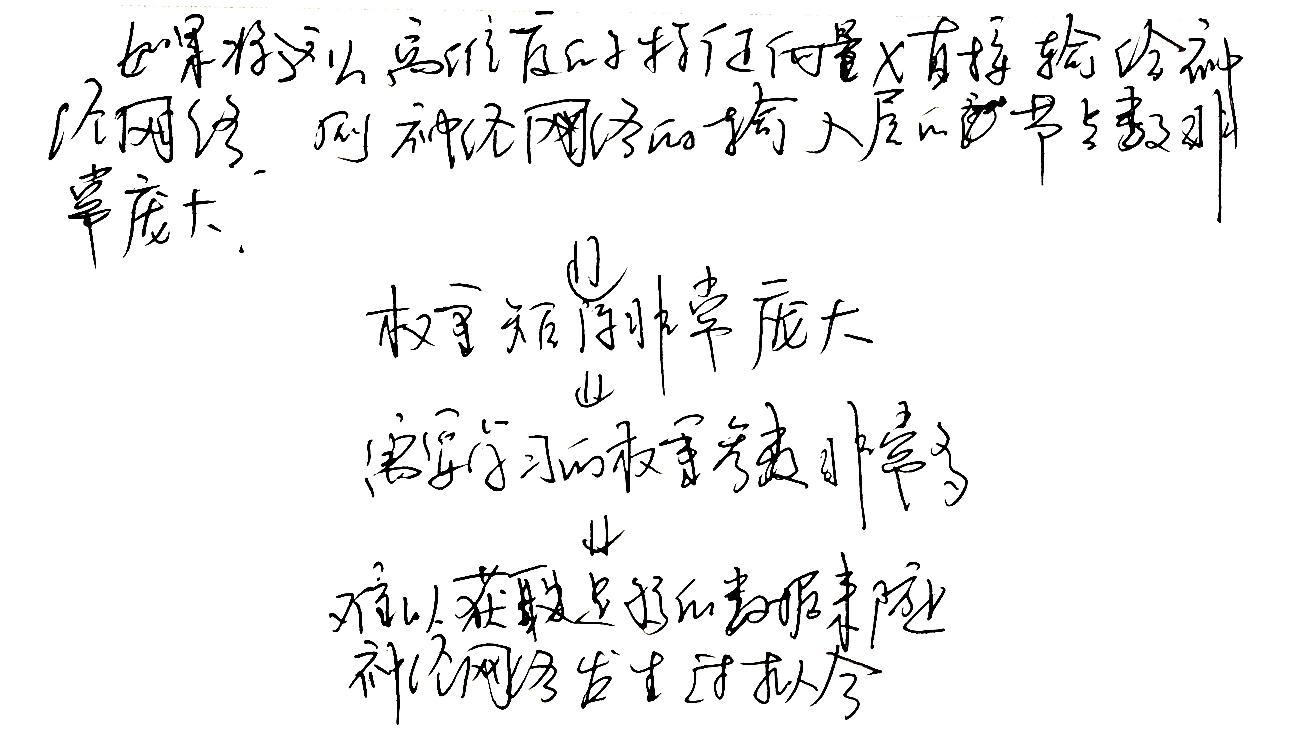 如果将这以高维度的特征向量X直接输给神
经网络,则神经网络的输入层的节点数非
常庞大.
⇓
权重矩阵非常庞大
⇓
需要学习的权重参数非常多
⇓
难以获取足够的数据来防止
神经网络发生过拟合